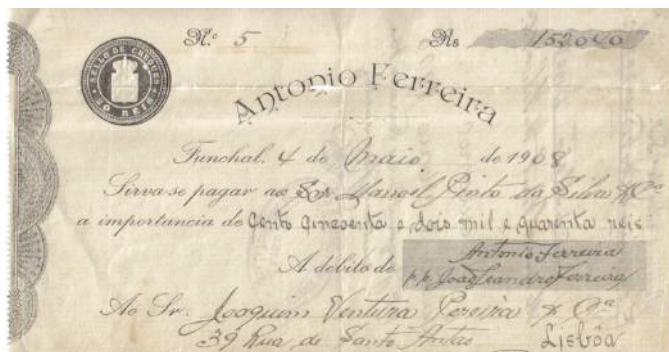 Nº 5 Rs 152040
SELLO DE CHEQUES
20 REIS
Antonio Ferreira
Funchal, 4 de Maio de 1908
Sirva-se pagar ao Snr Manoel Pinto da Silva & Cª
a importancia de Cento cincoenta e dois mil e quarenta reis
A debito de Antonio Ferreira
p.p. João Leandro Ferreira
Ao Sr. Joaquim Ventura Pereira & Cª
39 Rua de Santo Antao Lisbôa